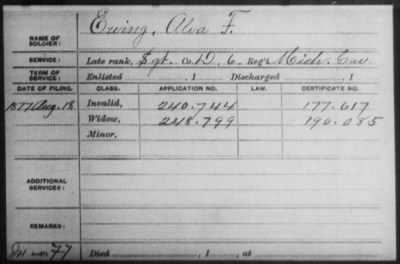 NAME OF SOLDIER: Ewing, Alva F.
SERVICE: Late rank, Sgt. Co. D, 6 Reg't Mich. Cav.
TERM OF SERVICE: Enlisted , 1 Discharged , 1
DATE OF FILING. CLASS. APPLICATION NO. LAW. CERTIFICATE NO.
1877 Aug. 18 Invalid, 240.744 177.617
Widow, 248.799 190.085
Minor,
ADDITIONAL SERVICES:
REMARKS:
77 Died , 1 , at